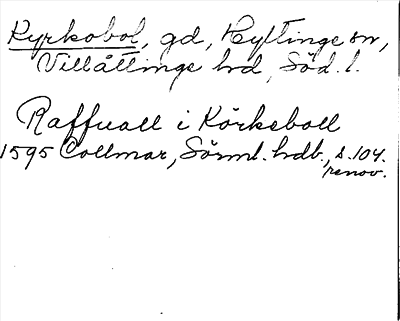 Kyrkobol, gd, Hyltinge sn,
Villåttinge hd, Söd. l.
Raffuall i Körkeboll
1595 Collmar, Sörml. hdb., s. 104.
renov.